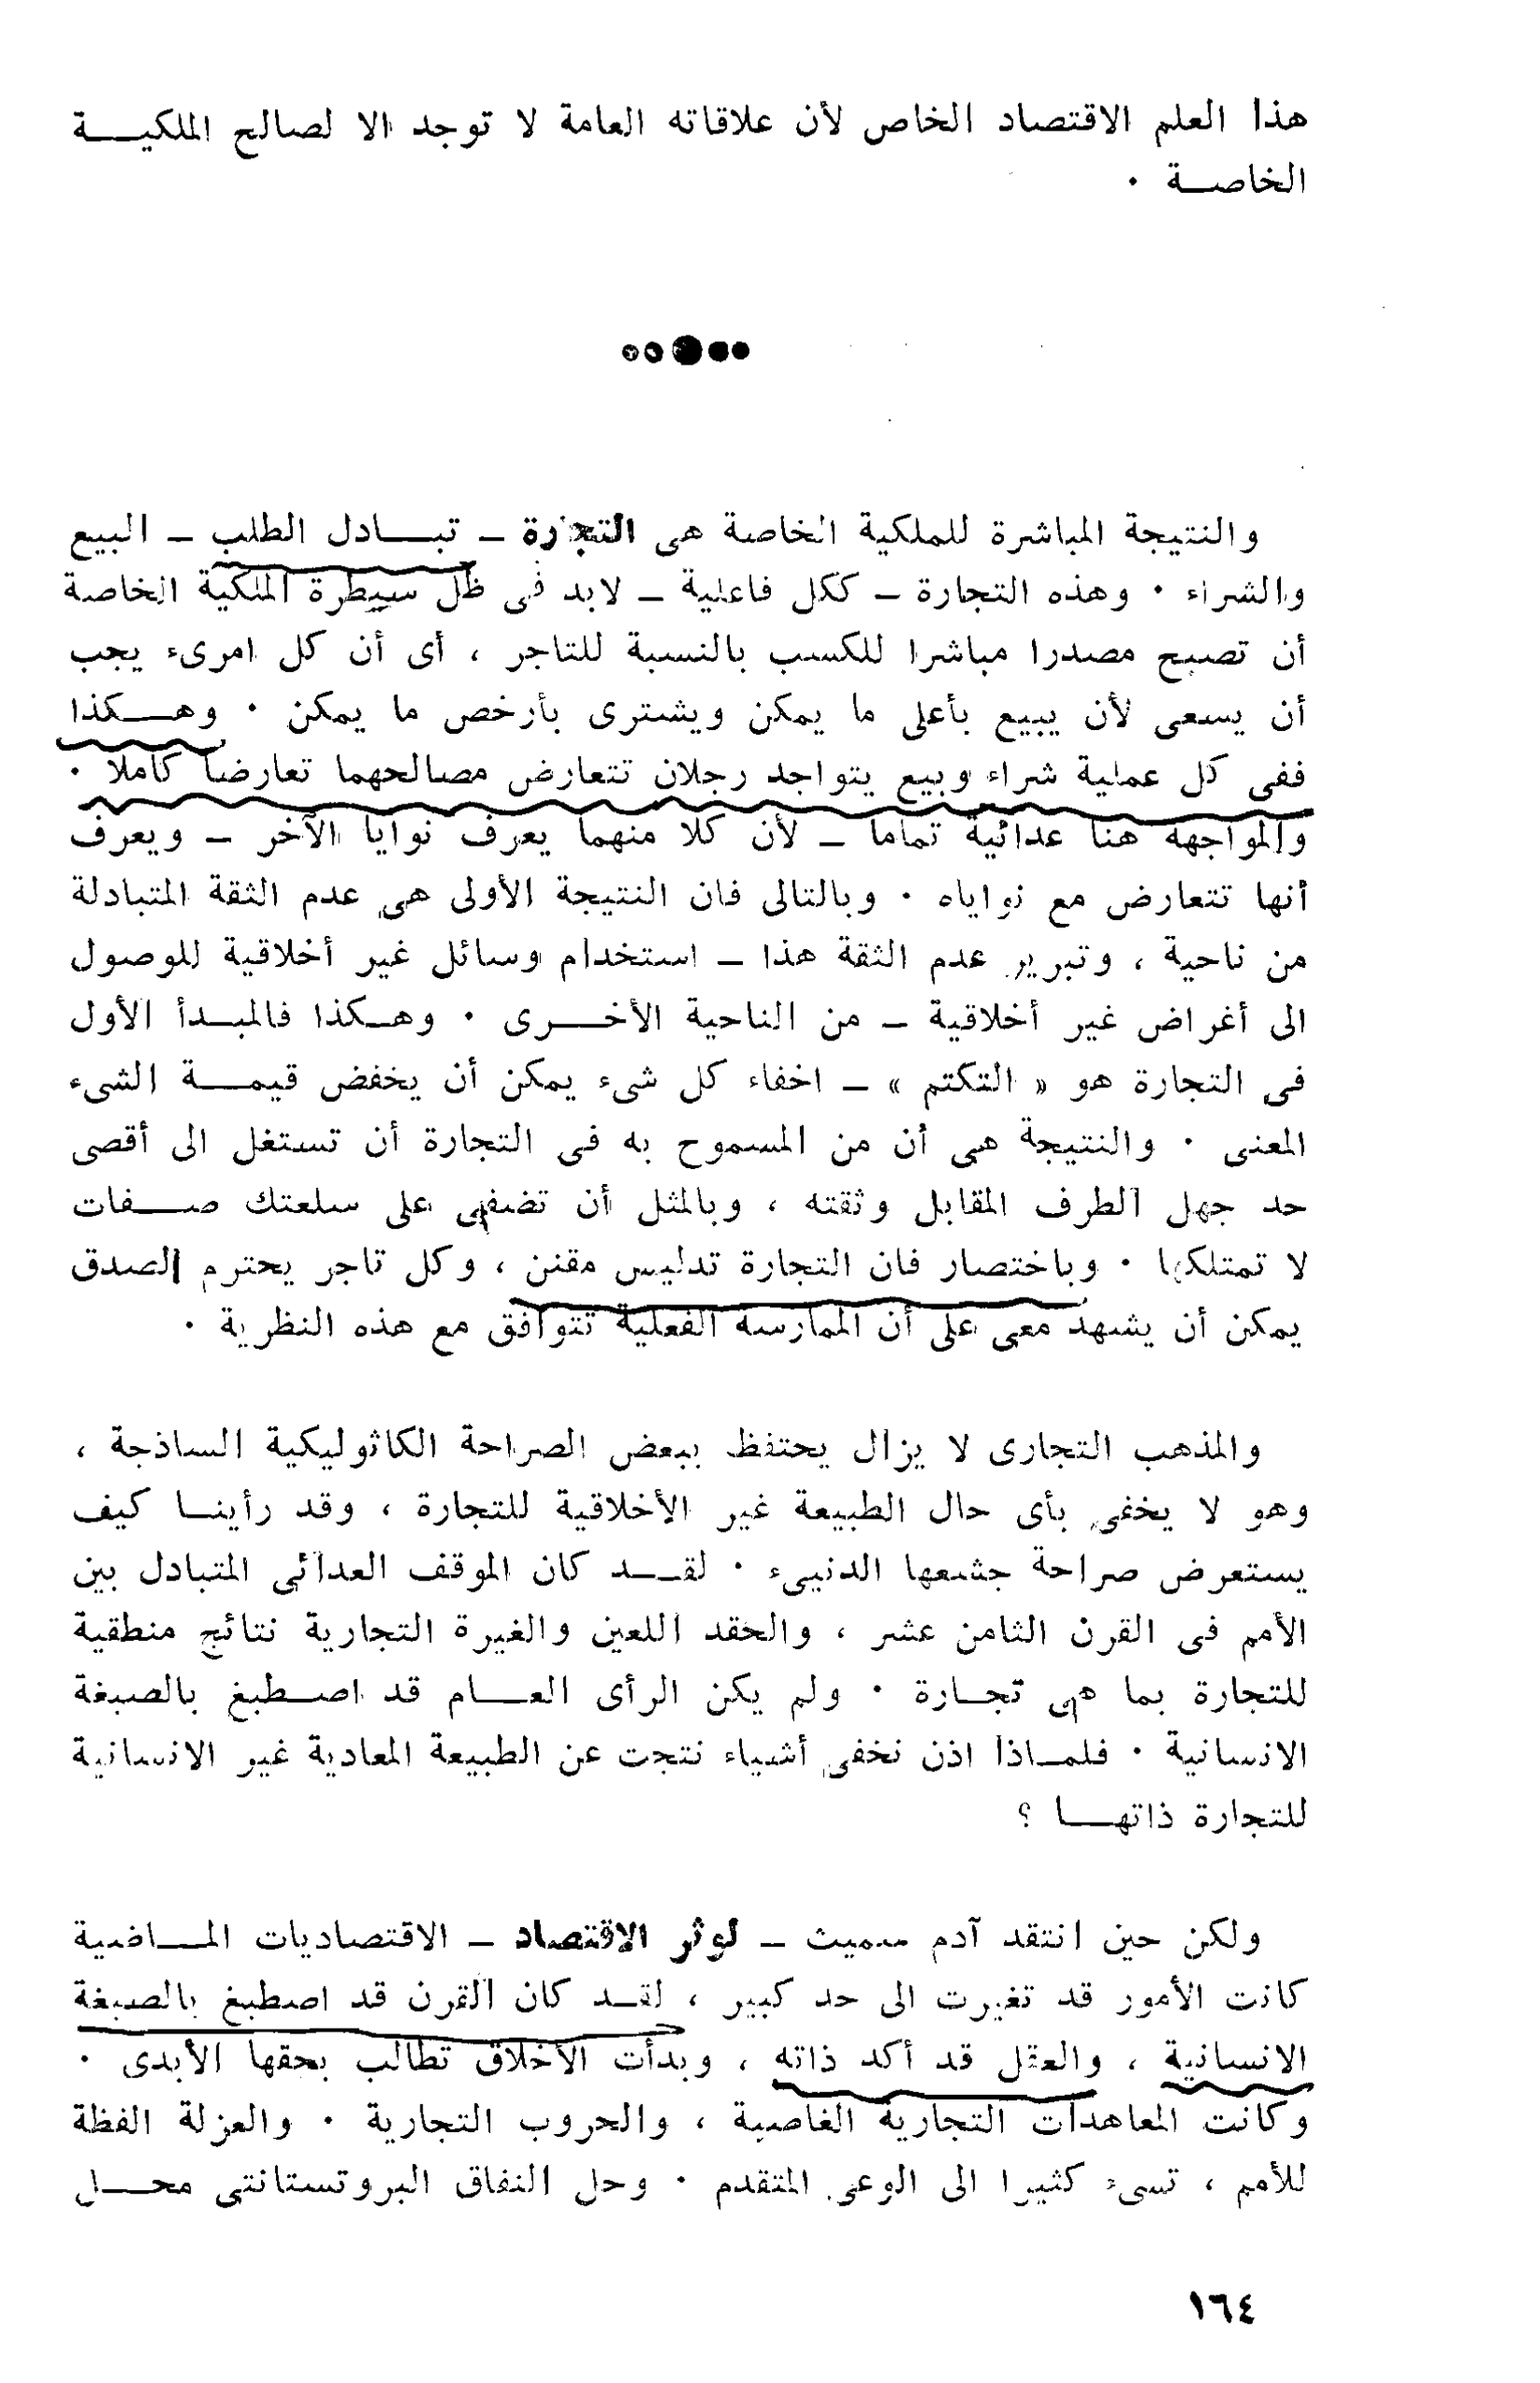 هذا العلم الاقتصاد الخاص لأن علاقاته العامة لا توجد الا لصالح الملكيـــة
الخاصــة ٠
والنتيجة المباشرة للملكية الخاصة هى التجارة ــ تبـــادل الطلب ــ البيع
والشراء ٠ وهذه التجارة ــ ككل فاعلية ــ لابد فى ظل سيطرة الملكية الخاصة
أن تصبح مصدرا مباشرا للكسب بالنسبة للتاجر ، أى أن كل امرىء يجب
أن يسعى لأن يبيع بأعلى ما يمكن ويشترى بأرخص ما يمكن ٠ وهــكذا
ففى كل عملية شراء وبيع يتواجد رجلان تتعارض مصالحهما تعارضا كاملا ٠
والمواجهة هنا عدائية تماما ــ لأن كلا منهما يعرف نوايا الآخر ــ ويعرف
أنها تتعارض مع نواياه ٠ وبالتالى فان النتيجة الأولى هى عدم الثقة المتبادلة
من ناحية ، وتبرير عدم الثقة هذا ــ استخدام وسائل غير أخلاقية للوصول
الى أغراض غير أخلاقية ــ من الناحية الأخـــرى ٠ وهــكذا فالمبــدأ الأول
فى التجارة هو « التكتم » ــ اخفاء كل شىء يمكن أن يخفض قيمـــة الشىء
المعنى ٠ والنتيجة هى أن من المسموح به فى التجارة أن تستغل الى أقصى
حد جهل الطرف المقابل وثقته ، وبالمثل أن تضفى على سلعتك صــفات
لا تمتلكها ٠ وباختصار فان التجارة تدليس مقنن ، وكل تاجر يحترم الصدق
يمكن أن يشهد معى على أن الممارسة الفعلية تتوافق مع هذه النظرية ٠
والمذهب التجارى لا يزال يحتفظ ببعض الصراحة الكاثوليكية الساذجة ،
وهو لا يخفى بأى حال الطبيعة غير الأخلاقية للتجارة ، وقد رأينــا كيف
يستعرض صراحة جشعها الدنيىء ٠ لقــد كان الموقف العدائى المتبادل بين
الأمم فى القرن الثامن عشر ، والحقد اللعين والغيرة التجارية نتائج منطقية
للتجارة بما هى تجــارة ٠ ولم يكن الرأى العـــام قد اصــطبغ بالصبغة
الانسانية ٠ فلمــاذا اذن نخفى أشياء نتجت عن الطبيعة المعادية غير الانسانية
للتجارة ذاتهـــا ؟
ولكن حين انتقد آدم سميث ــ لوثر الاقتصاد ــ الاقتصاديات المــاضية
كانت الأمور قد تغيرت الى حد كبير ، لقــد كان القرن قد اصطبغ بالصبغة
الانسانية ، والعقل قد أكد ذاته ، وبدأت الأخلاق تطالب بحقها الأبدى ٠
وكانت المعاهدات التجارية الغاصبة ، والحروب التجارية ٠ والعزلة الفظة
للأمم ، تسىء كثيرا الى الوعى المتقدم ٠ وحل النفاق البروتستانتى محـــل
١٦٤